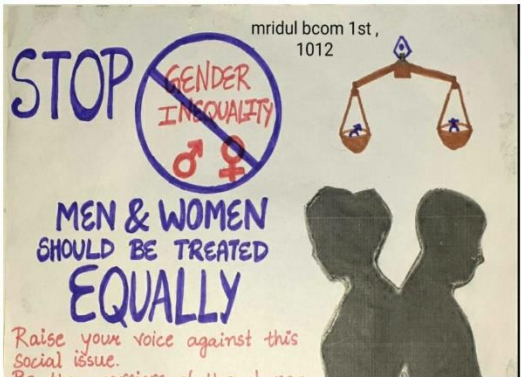 mridul bcom 1st ,
1012
STOP
GENDER
INEQUALITY
MEN & WOMEN
SHOULD BE TREATED
EQUALLY
Raise your voice against this
social issue.